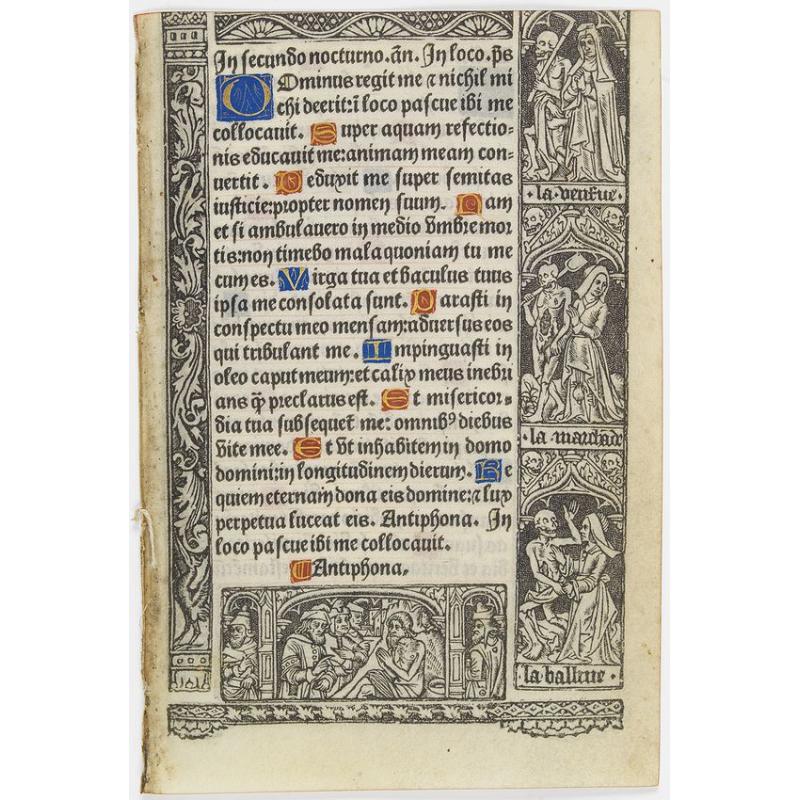 In secundo nocturno. añ. In loco. p̄s
Dominus regit me ⁊ nichil mi
chi deerit: ī loco pascue ibi me
collocauit. Super aquam refectio-
nis educauit me: animam meam con-
uertit. Deduxit me super semitas
iusticie: propter nomen suum. Nam
et si ambulauero in medio vmbre mor
tis: non timebo mala quoniam tu me
cum es. Virga tua et baculus tuus
ipsa me consolata sunt. Parasti in
conspectu meo mensam: aduersus eos
qui tribulant me. Impinguasti in
oleo caput meum: et calix meus inebri
ans q̄ preclarus est. Et misericor-
dia tua subsequet᷑ me: omnibꝰ diebus
vite mee. Et vt inhabitem in domo
domini: in longitudinem dierum. Re
quiem eternam dona eis domine: ⁊ lux
perpetua luceat eis. Antiphona. In
loco pascue ibi me collocauit.
Antiphona.
la veufue
la marchāde
la balliue